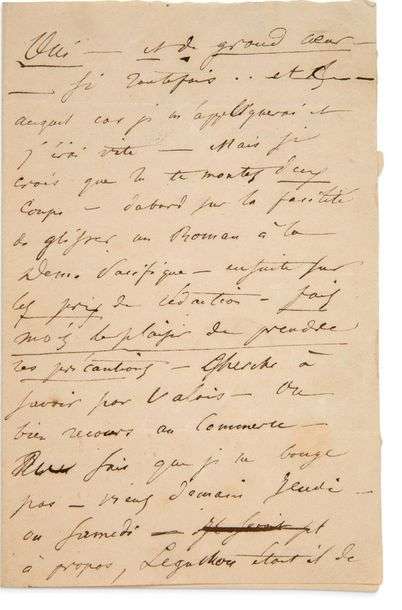 Oui — et de grand cœur —
— si toutefois .. et
auquel cas je m'appliquerai et
j'irai vite — Mais je
crois que tu te montes d'eux
coups — d'abord sur la facilité
de glisser un Roman à la
Démo Pacifique — ensuite sur
les prix de rédaction — fais
moi le plaisir de prendre
tes précautions — Cherche à
savoir par Valois — ou
bien recours au Commerce —
fais que je ne bouge
pas — viens demain Jeudi —
ou Samedi —
à propos, était il de